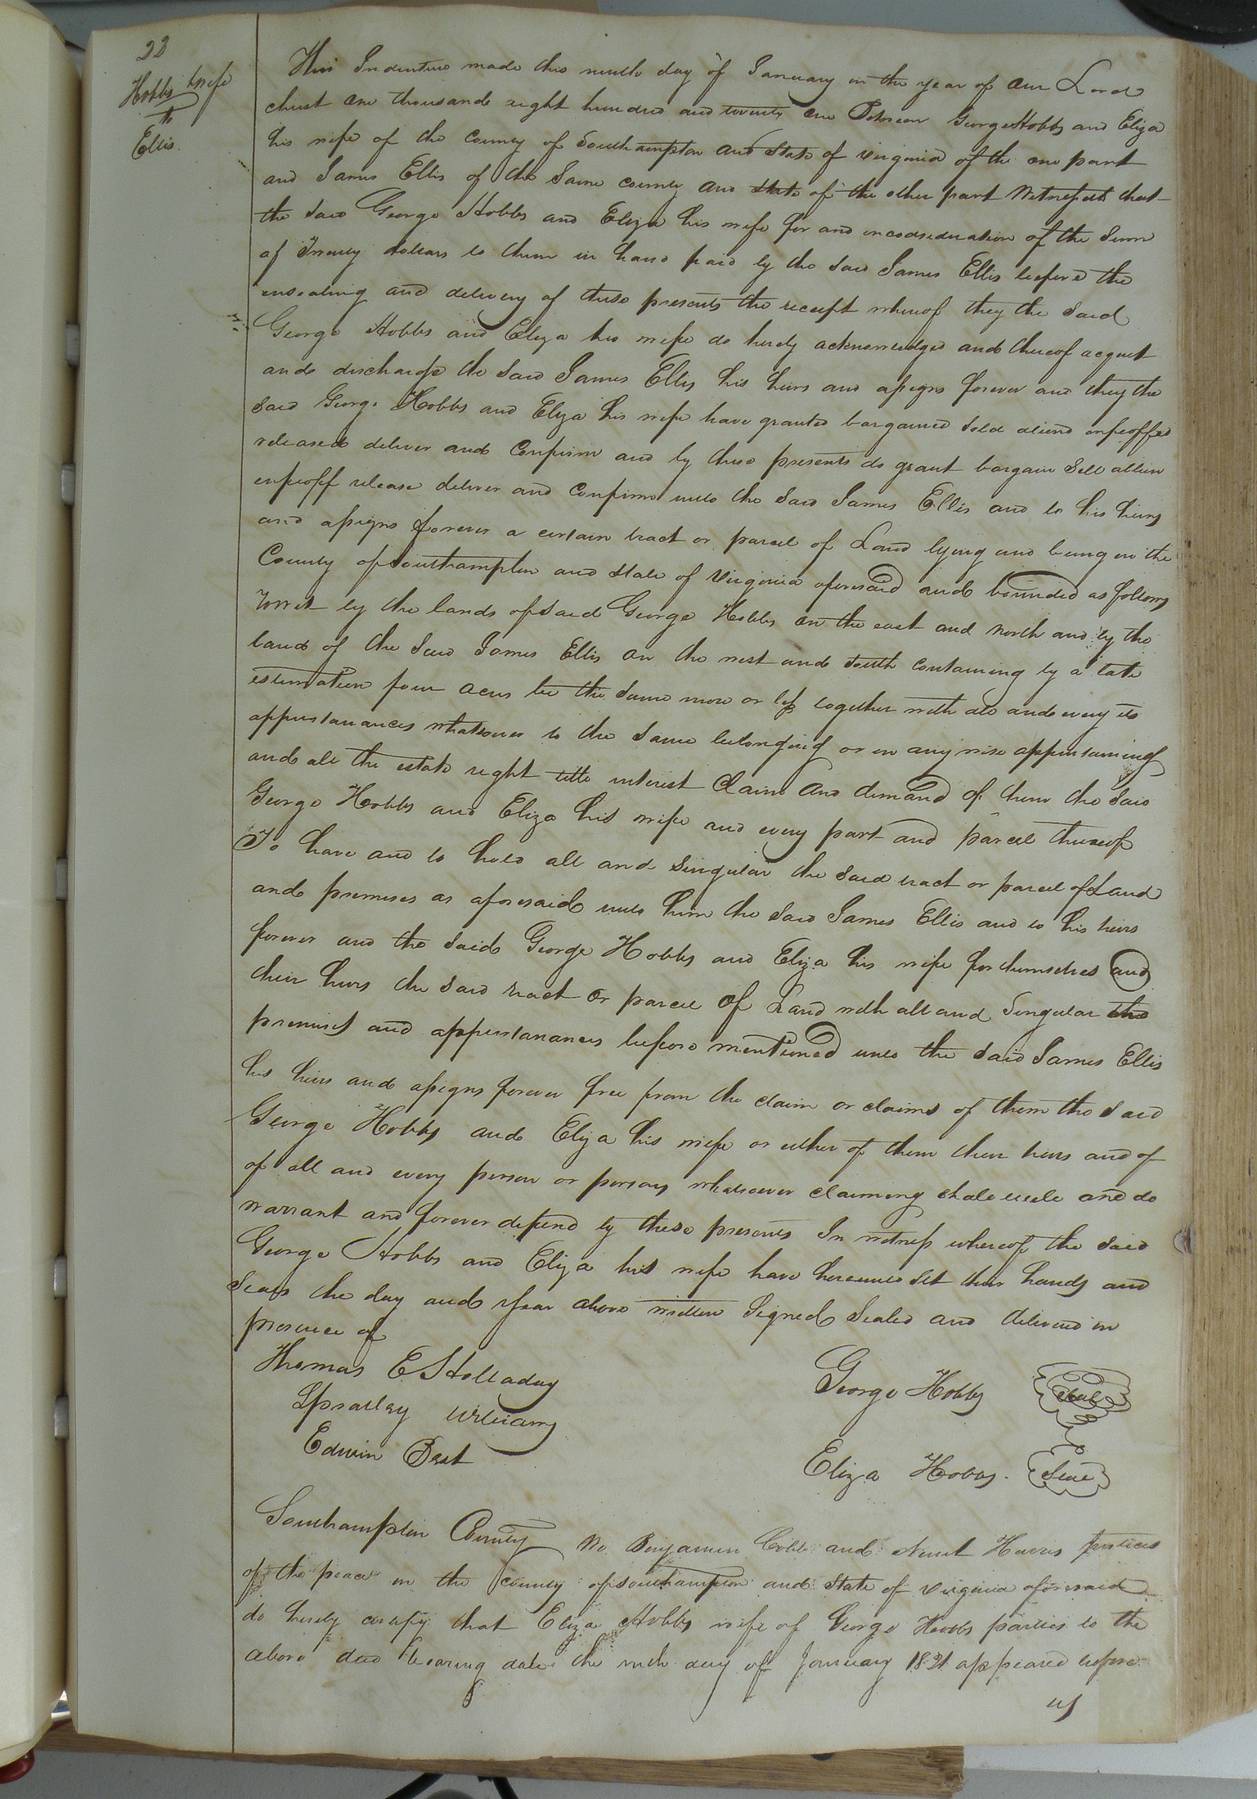 22
Hobbs & wife
to
Ellis.
This Indenture made this ninth day of January in the year of our Lord
christ one thousand eight hundred and twenty one Between George Hobbs and Eliza
his wife of the county of Southampton and State of Virginia of the one part
and James Ellis of the Same county and State of the other part Witnesseth that
the said George Hobbs and Eliza his wife for and in consideration of the Sum
of Twenty dollars to them in hand paid by the said James Ellis before the
ensealing and delivery of these presents the receipt whereof they the said
George Hobbs and Eliza his wife do hereby acknowledge and thereof acquit
and discharge the said James Ellis his heirs and assigns forever and they the
said George Hobbs and Eliza his wife have granted bargained Sold aliend enfeoffed
released deliver and Confirm and by these presents do grant bargain Sell allien
enfeoff release deliver and Confirm unto the said James Ellis and to his heirs
and assigns forever a certain tract or parcel of Land lying and being in the
County of Southampton and State of Virginia aforesaid and bounded as follows
Towit by the lands of said George Hobbs on the east and North and by the
land of the said James Ellis on the west and South containing by a late
estimation four acres be the same more or less together with all and every its
appurtanances whatsoever to the same belonging or in any wise appurtaining
and all the estate right title interest Claim and demand of them the said
George Hobbs and Eliza his wife and every part and parcel thereof
To have and to hold all and singular the said tract or parcel of Land
and premises as aforesaid unto him the said James Ellis and to his heirs
forever and the said George Hobbs and Eliza his wife for themselves and
their heirs the said tract or parcel of Land with all and Singular the
premises and appurtanances before mentioned unto the said James Ellis
his heirs and assigns forever free from the claim or claims of them the said
George Hobbs and Eliza his wife or either of them their heirs and of
of all and every person or persons whatsoever claiming shall will and do
warrant and forever defend by these presents In witness whereof the said
George Hobbs and Eliza his wife have hereunto Set their hands and
Seals the day and year above written Signed Sealed and delivered in
presence of
Thomas E Holladay
Spratley Williams
Edwin Best
George Hobbs Seal
Eliza Hobbs. Seal
Southampton County We Benjamin Cobb and Newit Harris justices
of the peace in the county of Southampton and State of Virginia aforesaid
do hereby certify that Eliza Hobbs wife of George Hobbs parties to the
above deed bearing date the ninth day of January 1821 appeared before
us